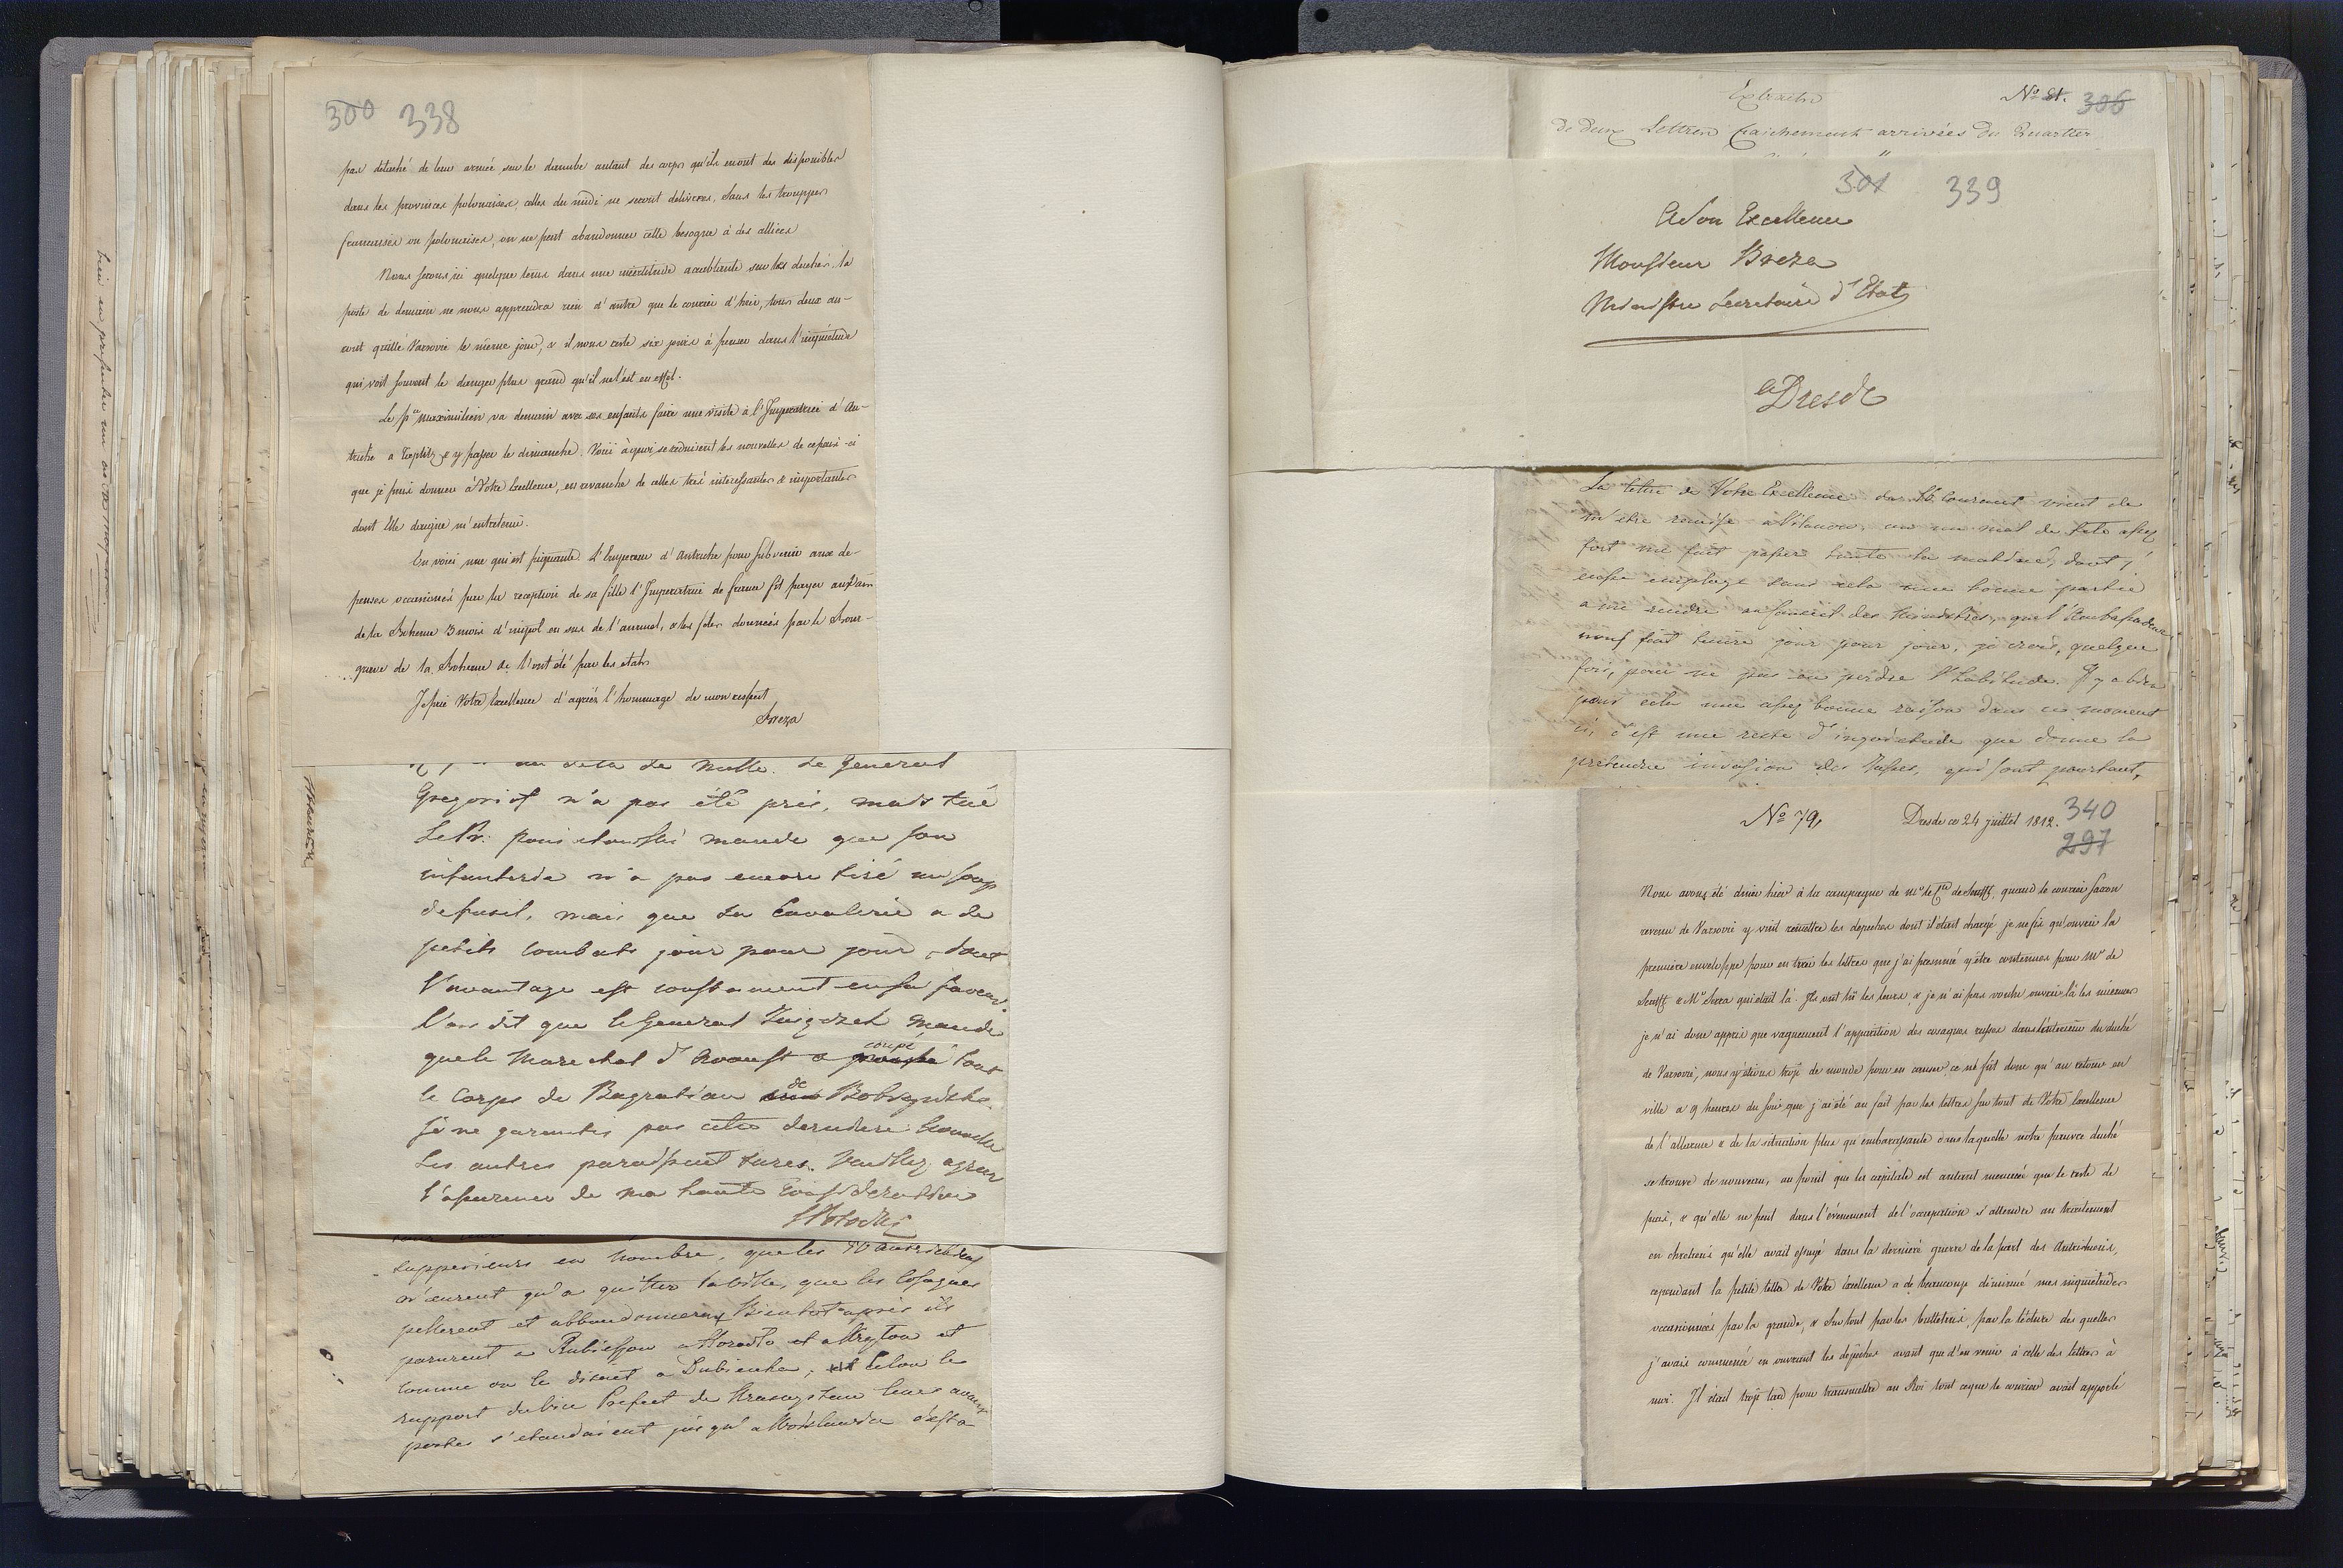 300 338
pas détaché de leur armée sur le danube autant des corps qu'ils en ont des disponibles
dans les provinces polonaises, celles du midi ne seront delivrées, sans les trouppes
françaises ou polonaises, on ne peut abandonner cette besogne à des alliées
Nous serons ici quelque tems dans une incertitude accablante sur les duchés. la
poste de demain ne nous apprendra rien d'autre que le courier d'hier, tous deux au-
ront quitté Varsovie le même jour, & il nous reste six jours à passer dans l'inquietude
qui voit souvent le danger plus grand qu'il ne l'est en effet.
Le pce maximilien va demain avec ses enfants faire une visite à l'Imperatrice d'Au-
triche a Toeplitz & y passer le dimanche. Voici à quoi se reduisent les nouvelles de ce pais-ci
que je puis donner à Votre Excellence, en revanche de celles très interessantes & importantes
dont Elle daigne m'entretenir.
En voici une qui est piquante. L'Empereur d'Autriche pour subvenir aux de-
penses occasionnés par la reception de sa fille l'Imperatrice de france fit payer
de la Boheme 3 mois d'impot en sus de l'annuel, & les fetes données par le Bour-
grave de la Boheme de l'ont été par les etats
Je prie Votre Excellence d'agréer l'hommage de mon respect
Breza
au dela de nulle. Le General
Gregoriof n'a pas été pris, mais tué
Le Pr: Poniatowski mande que son
infanterie n'a pas encore tiré un coup
de fusil, mais que sa Cavalerie a de
petits combats jour pour jour, dont
l'avantage est constament en sa faveur
L'on dit que le General Zaigczek mande
que le Marechal d'Avoust a coupé tout
le Corps de Bagration de Bobruyska.
Je ne garantis pas cette derniere Nouvelle
Les autres paraissent sures. Veuillez agreer
l'assurance de ma haute Consideration
SPotocki
supperieurs en nombre, que les 70 Autrichiens
n'eurent qu'a quitter la ville, que les Cosaques
pillerent et abbandonnerent Bientot apres ils
parurent a Rubieszow a Horodlo et a Kryłow et
comme on le disoit a Dubienka, et selon le
rapport du Vice Prefect de Krasnystaw leurs avant
postes s'etendaient jusqu'a Woislawice c'est a
Extraits
No 81. 306
de deux Lettres fraichement arrivées du Quartier
301 339
A Son Excellence
Monsieur Breza
Ministre Secretaire d'Etat
a Dresde
La lettre de Votre Excellence du 16 Courant vient de
m'etre remise a Vilanow, ou un mal de tete assez
fort me fait passer toute la matinée, dont j'
eusse employé sans cela une bonne partie
a me rendre au Conseil des Ministres, que l'Ambassadeur
nous fait tenir jour pour jour, je crois, quelque
fois, pour ne pas en perdre l'habitude. Il y a bien
pour cela une assez bonne raison dans ce moment
ci, c'est une reste d'inquietude que donne la
pretendue invasion des Russes, qui sont pourtant,
No 79,
Dresde ce 24 juillet 1812. 340
297
Nous avons été diner hier à la campagne de mr le Cte de Senfft, quand le courier saxon
revenu de Varsovie y vint remettre les depeches dont il était chargé je ne fis qu'ouvrir la
première enveloppe pour en tirer les lettres que j'ai presumé y être contenues pour Mr de
Senfft & Mr Serra qui était là. Ils ont lû les leurs, & je n'ai pas voulu ouvrir là les miennes
je n'ai donc appris que vaguement l'apparition des cosaques russes dans l'interieur du duché
de Varsovie, nous y étions trop de monde pour en causer, ce ne fût donc qu'au retour en
ville a 9 heures du soir que j'ai été au fait par les lettres surtout de Votre Excellence
de l'allarme & de la situation plus qu'embarassante dans laquelle notre pauvre duché
se trouve de nouveau, au point que la capitale est autant menacée que le reste de
pais, & qu'elle ne peut dans l'évenement de l'occupation s'attendre au traitement
en chretiens qu'elle avait essuyé dans la dernière guerre de la part des Autrichiens,
cependant la petite lettre de Votre Excellence a de beaucoup diminué mes inquietudes
occasionnées par la grande, & surtout par les bulletins, par la lécture des quelles
j'avais commencé en ouvrant les depeches avant que d'en venir à celle des lettres à
moi. Il était trop tard pour transmettre au Roi tout ce que le courier avait apporté